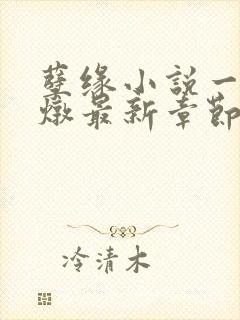 孽缘小説一
燉最新章節
冷清木